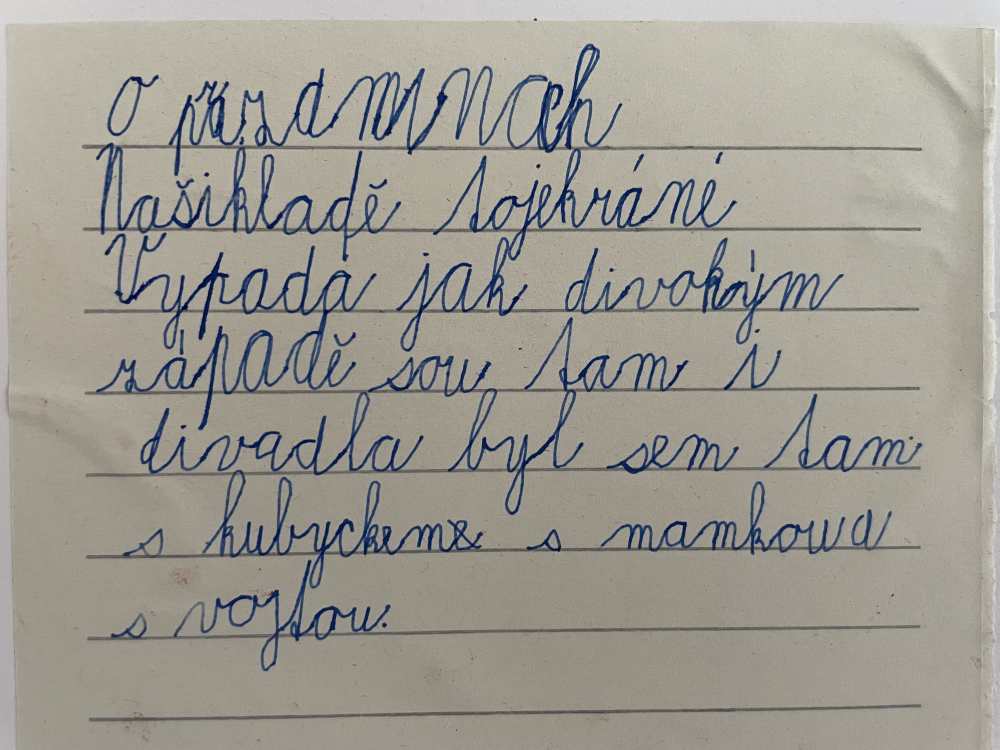 O przdninach
Našikladě tojekráné
Vypadá jak divokým
západě sou tam i
divadla byl sem tam
s kubyckem s mamkou a
s vojtou.